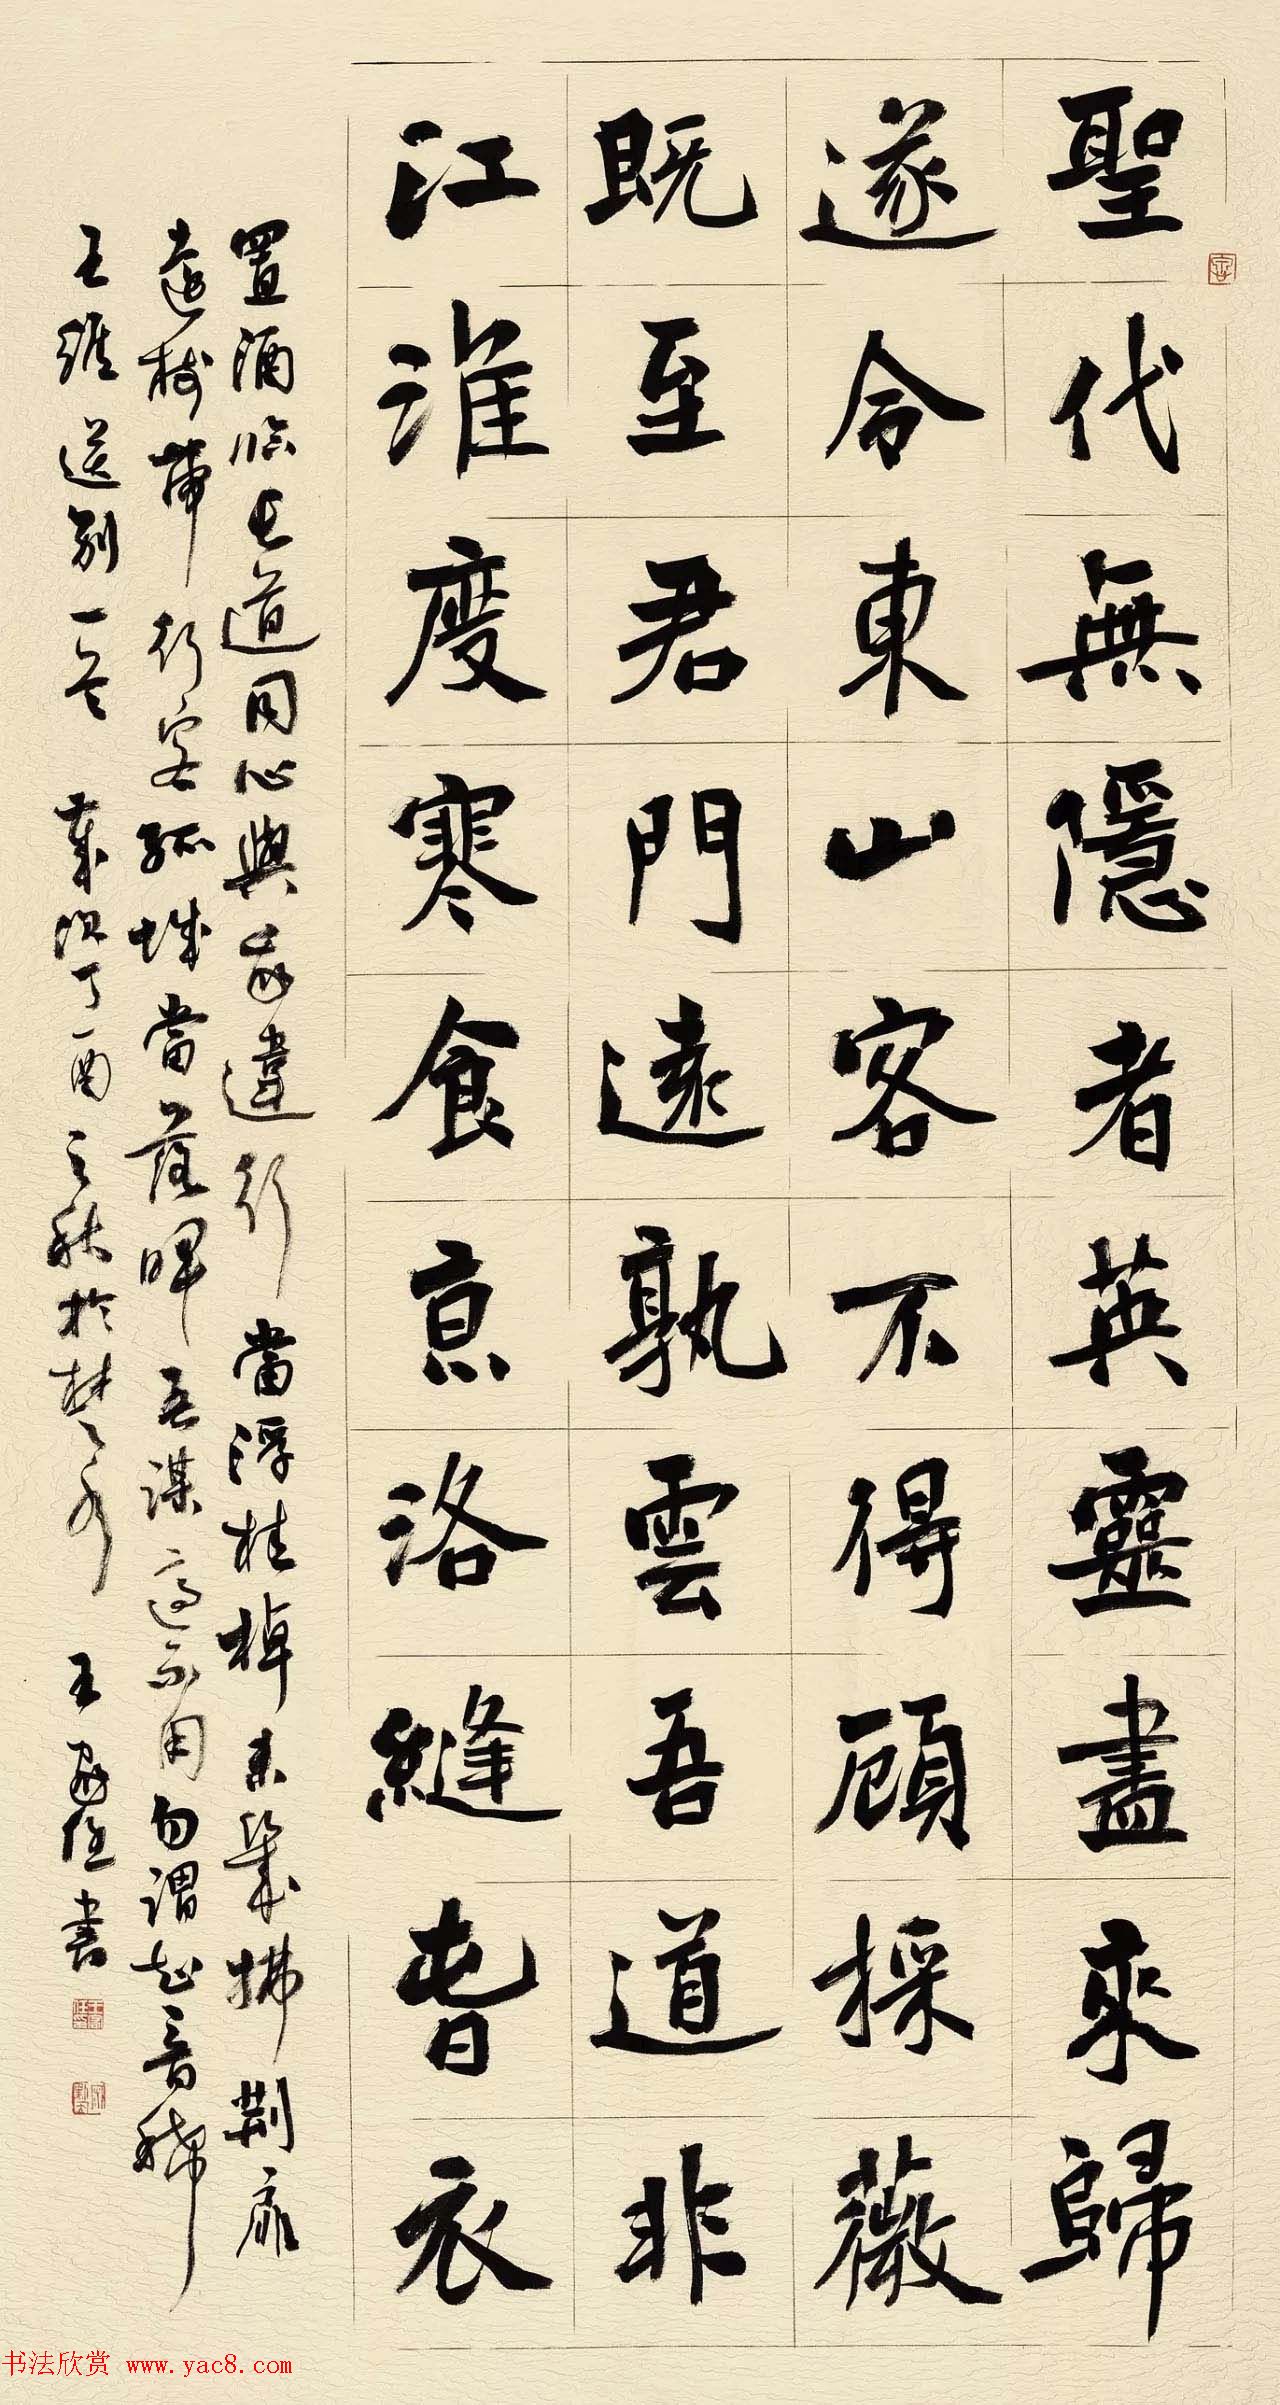 聖代無隱者英靈盡來歸
遂令東山客不得顧採薇
既至君門遠孰雲吾道非
江淮度寒食京洛縫春衣
置酒臨長道同心與我違行當浮桂棹未幾拂荊扉
遠樹帶行客孤城當落暉吾謀適不用勿謂知音稀
王維送別一首 歲次丁酉之秋於楚 王 書
书法欣赏 www.yac8.com